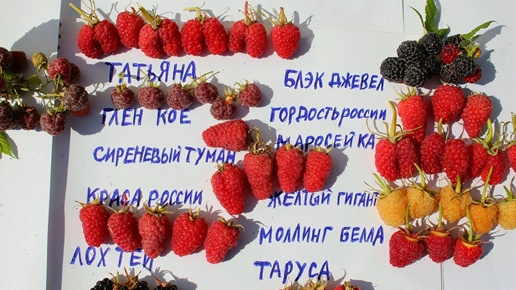 ТАТЬЯНА
ГЛЕН КОЕ
СИРЕНЕВЫЙ ТУМАН
КРАСА РОССИИ
ЛОХ ТЕЙ
БЛЭК ДЖЕВЕЛ
ГОРДОСТЬ РОССИИ
МАРОСЕЙКА
ЖЕЛТЫЙ ГИГАНТ
МОЛЛИНГ БЕЛЛА
ТАРУСА